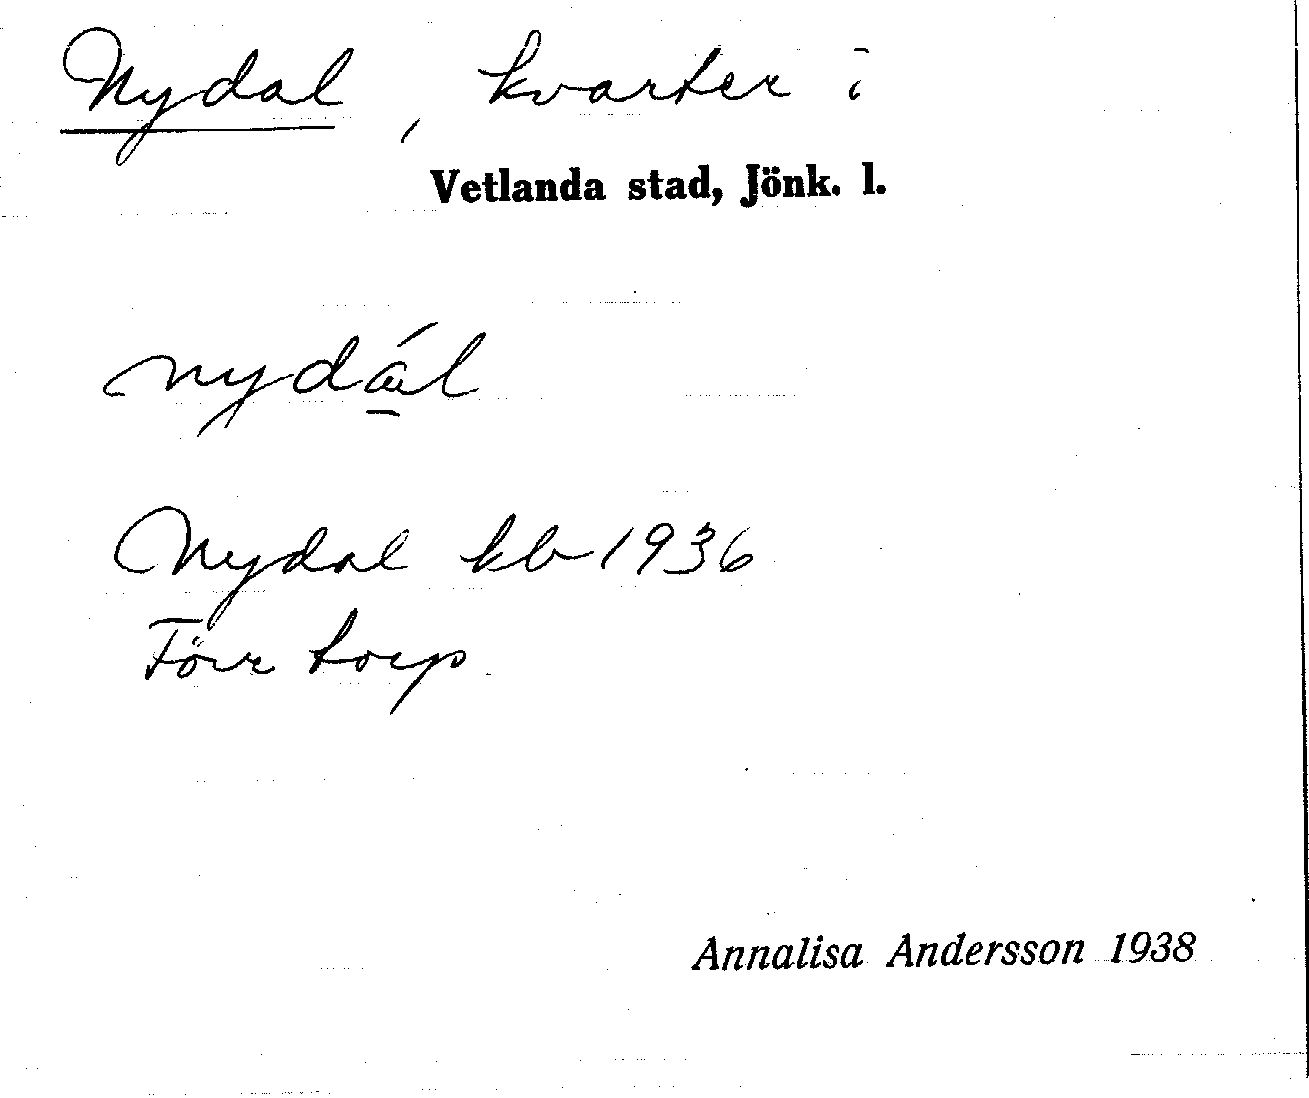 Nydal, kvarter i
Vetlanda stad, Jönk. l.
nydá̱l
Nydal kb 1936
Förr torp
Annalisa Andersson 1938